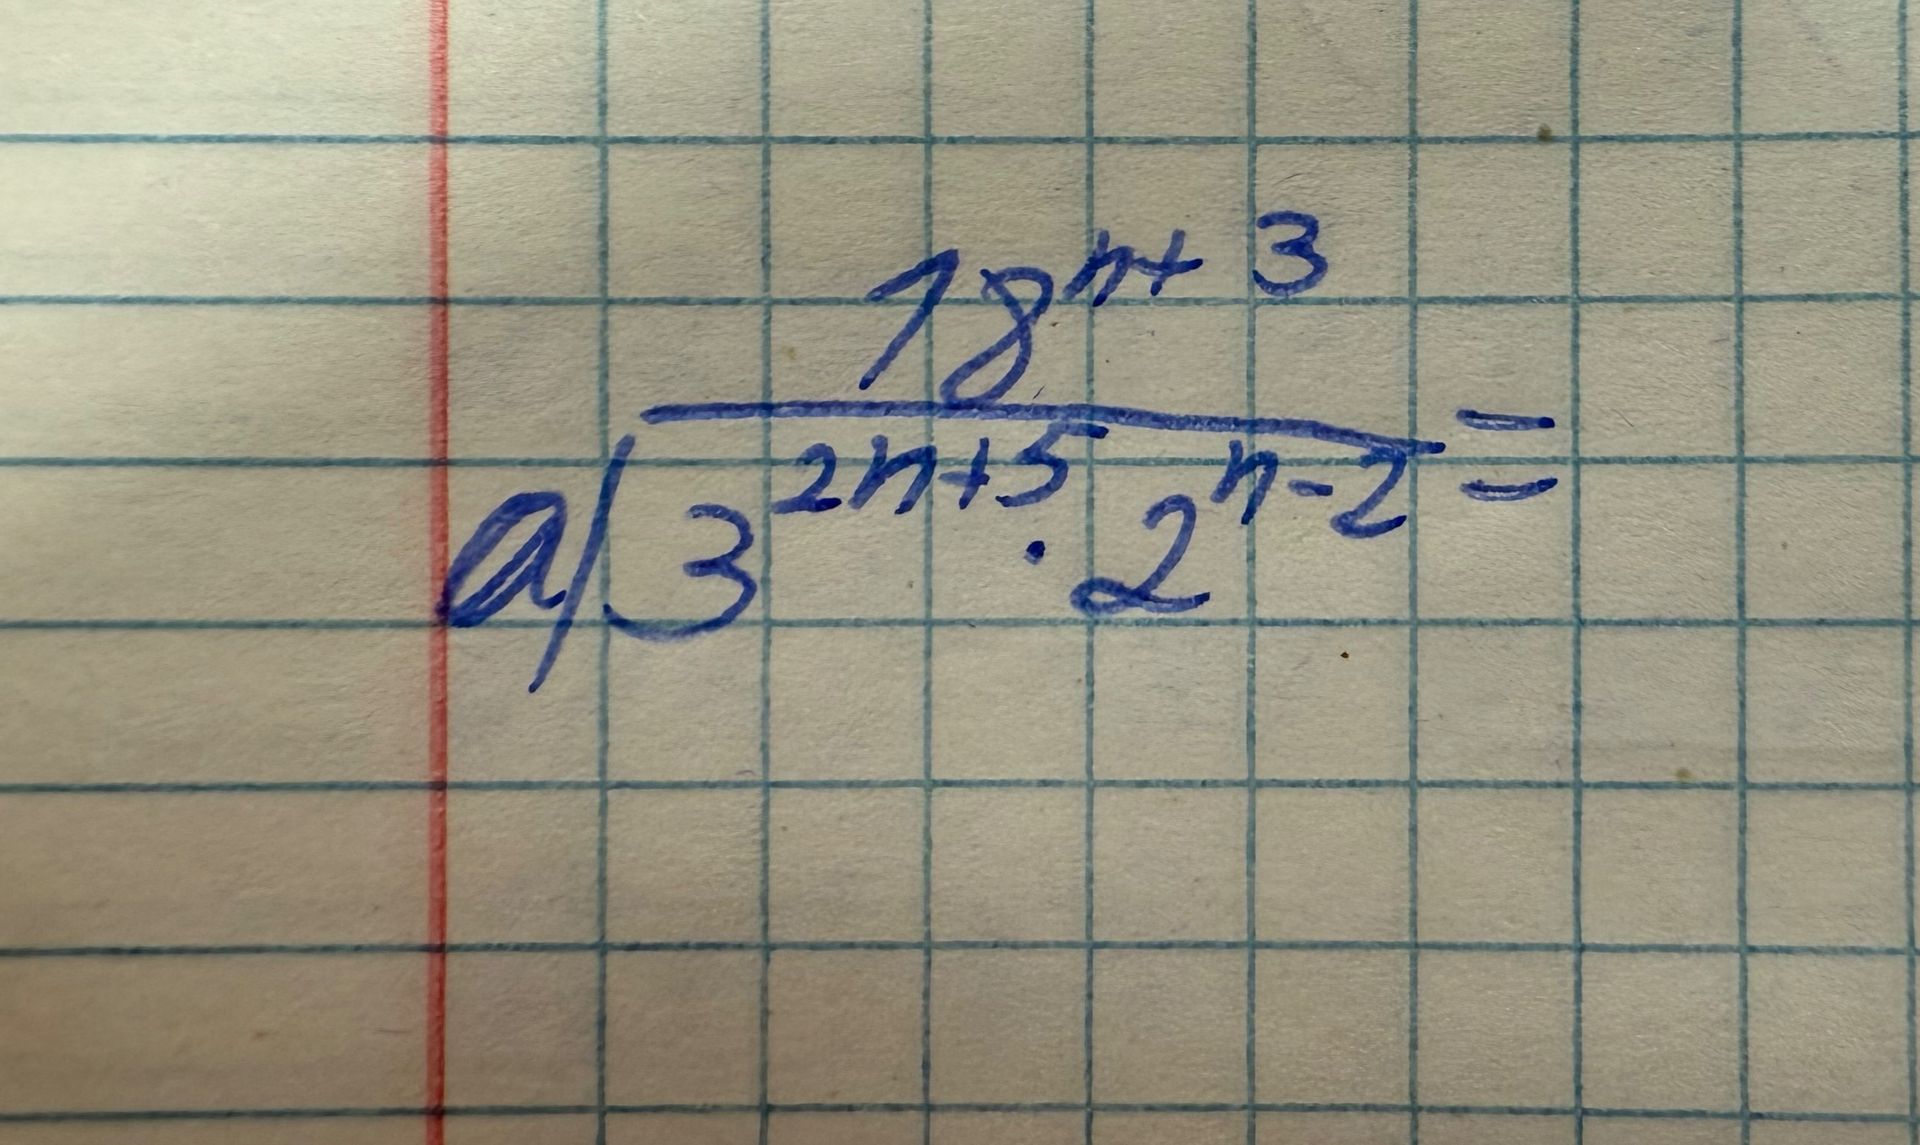 18^{n+3}
а) 3^{2n+5} · 2^{n-2} =